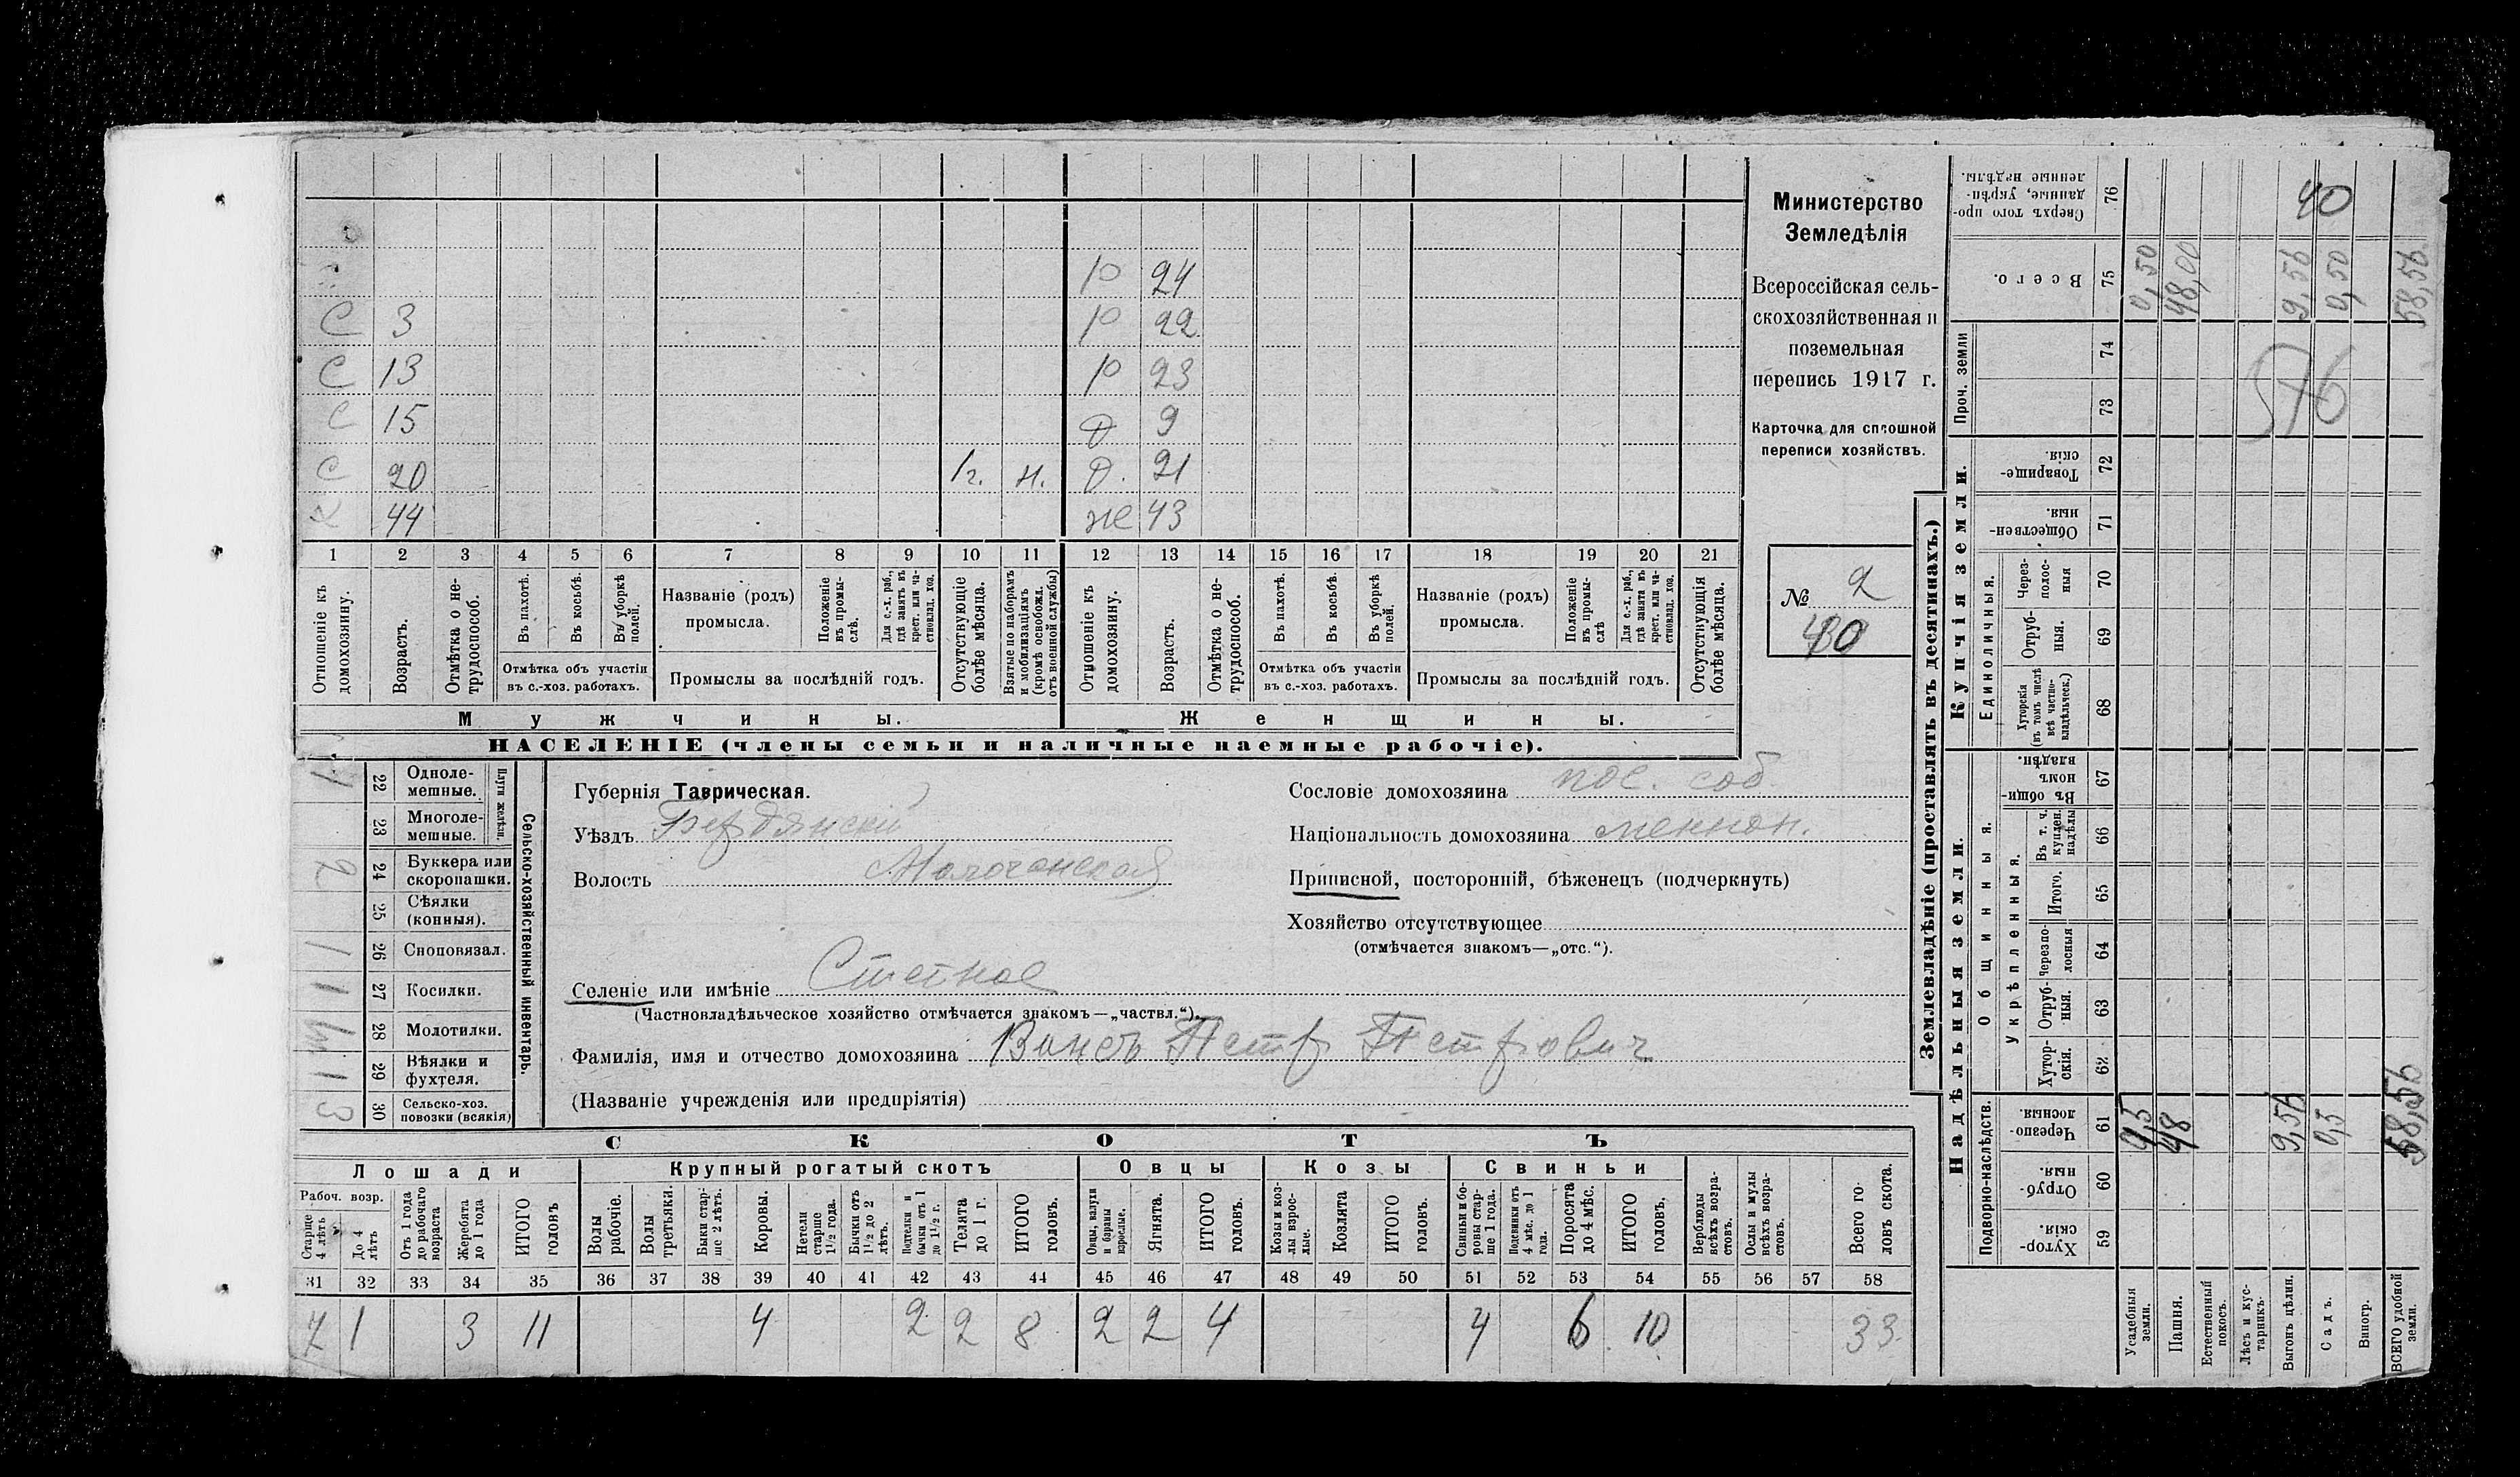 Министерство
Земледѣлія
Всероссійская сель-
скохозяйственная и
поземельная
перепись 1917 г.
Карточка для сплошной
переписи хозяйствъ.
№ 2
Р 24
С 3 Р 22
С 13 Р 23
С 15 Д 9
С 20 1г. н. Д. 21
Х 44 же 43
1 2 3 4 5 6 7 8 9 10 11 12 13 14 15 16 17 18 19 20 21
Отношеніе къ домохозяину.
Возрастъ.
Отмѣтка о не-трудоспособ.
Въ пахотѣ.
Въ косьбѣ.
Въ уборкѣ полей.
Отмѣтка объ участіи
въ с.-хоз. работахъ.
Названіе (родъ)
промысла.
Положеніе въ промы-слѣ.
Для с.-х. раб., гдѣ занятъ въ крест. или ча-стновлад. хоз.
Промыслы за послѣдній годъ.
Отсутствующіе болѣе мѣсяца.
Взятые по наборамъ и мобилизаціямъ (кромѣ освобожд. отъ военной службы)
Отношеніе къ домохозяину.
Возрастъ.
Отмѣтка о не-трудоспособ.
Въ пахотѣ.
Въ косьбѣ.
Въ уборкѣ полей.
Отмѣтка объ участіи
въ с.-хоз. работахъ.
Названіе (родъ)
промысла.
Положеніе въ промы-слѣ
Для с.-х. раб., гдѣ занята въ крест. или ча-стновлад. хоз.
Промыслы за послѣдній годъ.
Отсутствующія болѣе мѣсяца.
Мужчины.
Женщины.
НАСЕЛЕНІЕ (члены семьи и наличные наемные рабочіе).
Сельско-хозяйственный инвентарь.
Плуги желѣзн.
1 22 Одноле-мешные.
23 Многоле-мешные.
2 24 Буккера или скоропашки.
25 Сѣялки (конныя).
1 26 Сноповязал.
1 27 Косилки.
28 Молотилки.
1 29 Вѣялки и фухтеля.
3 30 Сельско-хоз. повозки (всякія)
Губернія Таврическая.
Уѣздъ Бердянскій
Волость Молочанская
Селеніе или имѣніе Степное
(Частновладѣльческое хозяйство отмѣчается знакомъ—„частвл.“).
Фамилія, имя и отчество домохозяина Винсъ Петр Петрович
(Названіе учрежденія или предпріятія)
Сословіе домохозяина пос. соб
Національность домохозяина меннон.
Приписной, посторонній, бѣженецъ (подчеркнуть)
Хозяйство отсутствующее
(отмѣчается знакомъ—„отс.“).
СКОТЪ
Лошади
Крупный рогатый скотъ
Овцы
Козы
Свиньи
Рабоч. возр.
Старше 4 лѣтъ
До 4 лѣтъ
Отъ 1 года до рабочаго возраста
Жеребята до 1 года
ИТОГО головъ
Волы рабочіе.
Волы третьяки.
Быки стар-ше 2 лѣтъ.
Коровы.
Нетели старше 1 1/2 года.
Бычки отъ 1 1/2 до 2 лѣтъ.
Подтелки и бычки отъ 1 до 1 1/2 г.
Телята до 1 г.
ИТОГО головъ.
Овцы, валухи и бараны взрослые.
Ягнята.
ИТОГО головъ.
Козы и коз-лы взрос-лые.
Козлята
ИТОГО головъ.
Свиньи и бо-ровы стар-ше 1 года.
Подсвинки отъ 4 мѣс. до 1 года.
Поросята до 4 мѣс.
ИТОГО головъ.
Верблюды всѣхъ возра-стовъ.
Ослы и мулы всѣхъ возра-стовъ.
Всего го-ловъ скота.
31 32 33 34 35 36 37 38 39 40 41 42 43 44 45 46 47 48 49 50 51 52 53 54 55 56 57 58
7 1 3 11 4 2 2 8 2 2 4 4 6 10 33
Землевладѣніе (проставлять въ десятинахъ.)
Надѣльныя земли.
Купчія земли.
Подворно-наслѣдств.
Общинныя.
Укрѣпленныя.
Единоличныя.
Проч. земли
Сверхъ того про-данные, укрѣп-ленные надѣлы. 76 40
Всего. 75 0,50 48,00 9,56 0,50 58,56
74
73
576
Товарище-скія. 72
Обществен-ныя. 71
Через-полос-ныя 70
Отруб-ныя. 69
Хуторскія (въ томъ числѣ всѣ частно-владѣльческ.) 68
Въ общи-номъ владѣн. 67
Въ т. ч. куплен. надѣлы 66
Итого. 65
Черезпо-лосныя 64
Отруб-ныя. 63
Хутор-скія. 62
Черезпо-лосныя. 61 0,5 48 9,56 0,5 58,56
Отруб-ныя. 60
Хутор-скія. 59
Усадебныя земли.
Пашня.
Естественный покосъ.
Лѣсъ и кус-тарникъ.
Выгонъ цѣлин.
Садъ.
Виногр.
ВСЕГО удобной земли.